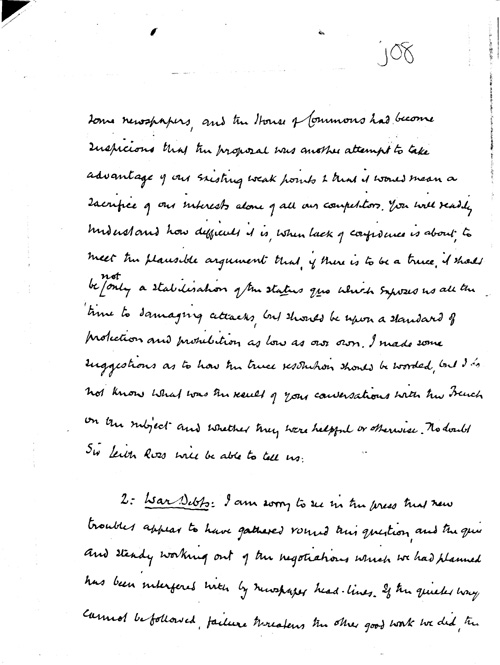 108
some newspapers, and the House of Commons had become
suspicious that the proposal was another attempt to take
advantage of our existing weak points & that it would mean a
sacrifice of our interests alone of all our competitors. You will readily
understand how difficult it is, when lack of confidence is about, to
meet the plausible argument that, if there is to be a truce, it should
be not only a stabilisation of the status quo which exposes us all the
time to damaging attacks, but should be upon a standard of
protection and prohibition as low as our own. I made some
suggestions as to how the truce resolution should be worded, but I do
not know what was the result of your conversations with the French
on the subject and whether they were helpful or otherwise. No doubt
Sir Leith Ross will be able to tell us.
2: War Debts: I am sorry to see in the press that new
troubles appear to have gathered round this question, and the quie
and steady working out of the negotiations which we had planned
has been interfered with by newspaper head-lines. If the quieter way
cannot be followed, failure threatens the other good work we did, the